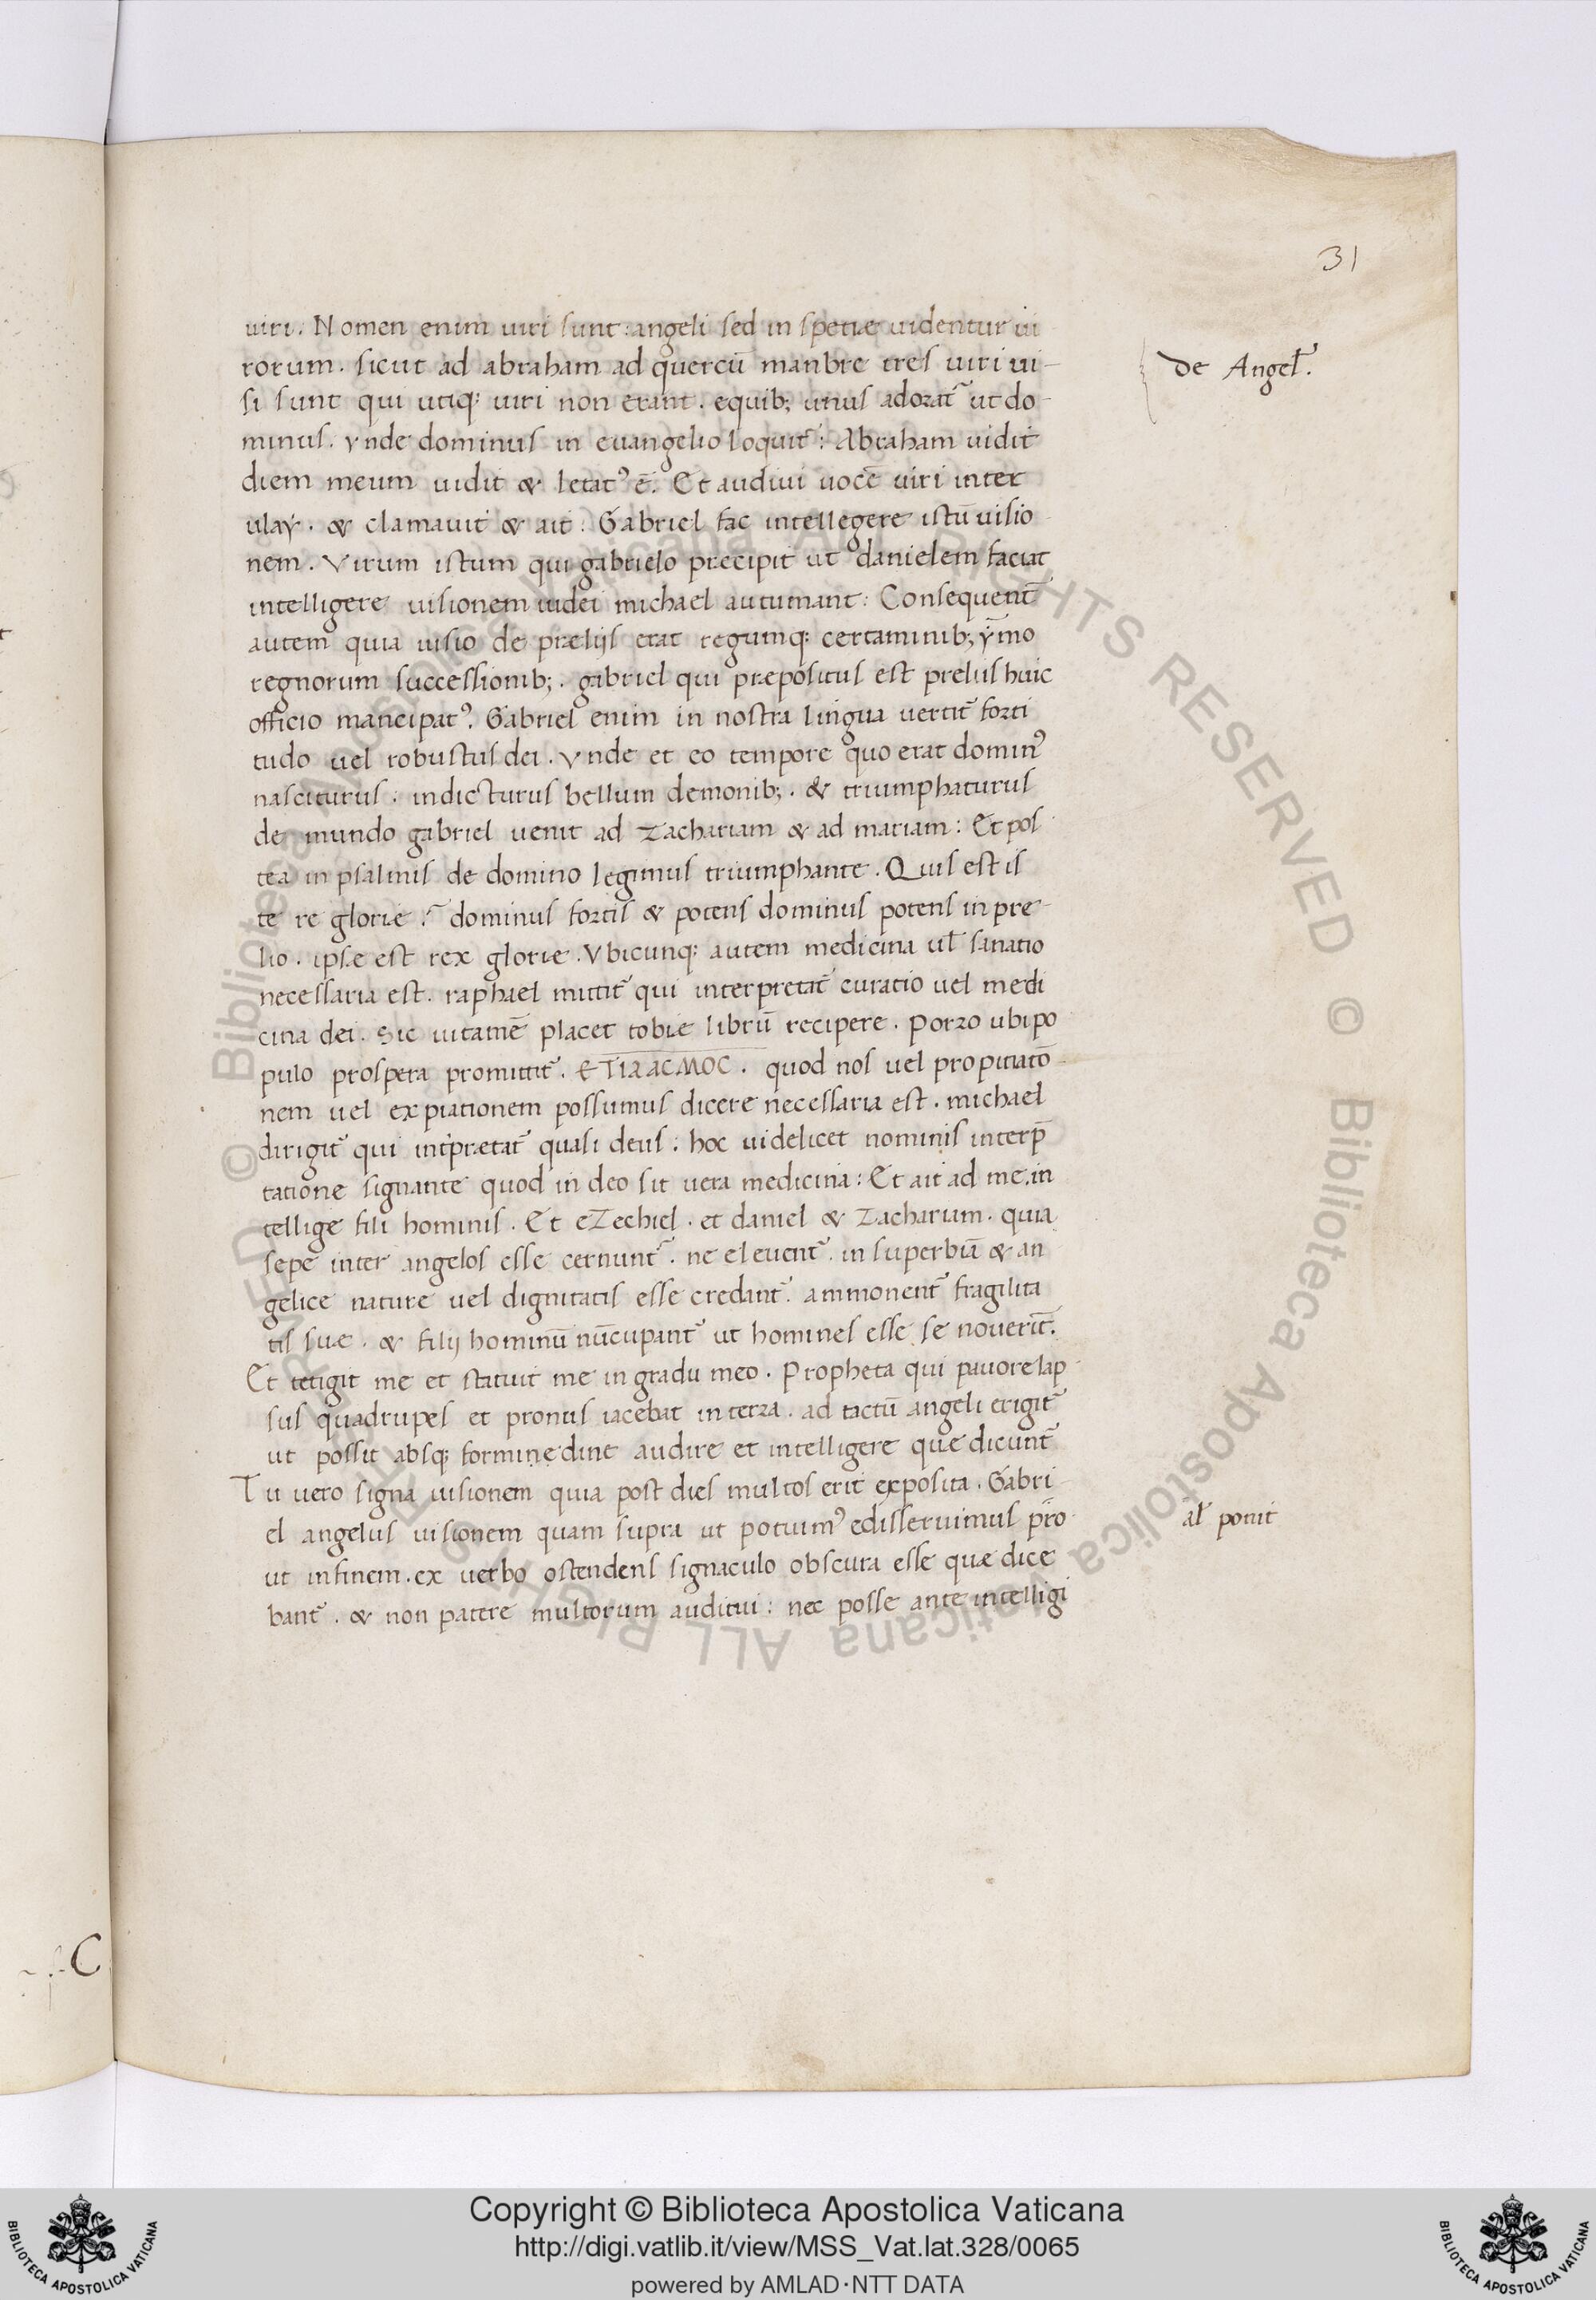 31
uiri. Nomen enim uiri sunt: angeli sed in spetiæ uidentur ui
rorum. sicut ad abraham ad quercū manbre tres uiri ui-
si sunt qui utiq; uiri non erant. equib; unus adorat᷑ ut do-
minus. vnde dominus in euangelio loquit᷑: Abraham uidit
diem meum uidit & letatꝰ ē. Et audiui uocē uiri inter
ulaÿ. & clamauit & ait: Gabriel fac intellegere istū uisio
nem. Virum istum qui gabrielo præcipit ut danielem faciat
intelligere uisionem iudei michael autumant: Consequent̄
autem quia uisio de præliis erat regumq; certaminib; ẏmo
regnorum successionib;. gabriel qui præpositus est preliis huic
officio mancipatꝰ. Gabriel enim in nostra lingua vertit᷑ forti
tudo uel robustus dei. vnde et eo tempore quo erat dominꝰ
nasciturus. indicturus bellum demonib;. & triumphaturus
de mundo gabriel uenit ad zachariam & ad mariam: Et pos
tea in psalmis de domino legimus triumphante. Quis est is
te re gloriæ? dominus fortis & potens dominus potens in pre-
lio. ipsæ est rex gloriæ. Vbicunq; autem medicina ul̄ sanatio
necessaria est. raphael mittit᷑ qui interpretat᷑ curatio uel medi
cina dei. Sic uitamē placet tobiæ librū recipere. Porro ubi po
pulo prospera promittit᷑. ETIAACMOC. quod nos uel propitiatō
nem uel expiationem possumus dicere necessaria est. michael
dirigit᷑ qui int̄prætat᷑ quasi deus: hoc uidelicet nominis interp̄
tatione signante quod in deo sit uera medicina: Et ait ad me. in
tellige fili hominis. Et eZechiel. et daniel & Zacharium. quia
sepe inter angelos esse cernunt᷑. ne eleuent᷑. in superbiā & an
gelice nature uel dignitatis esse credant᷑. ammonent᷑ fragilita
tis suæ. & filij hominū nūcupant᷑ ut homines esse se nouerīt.
Et tetigit me et statuit me in gradu meo. Propheta qui pauore lap
sus quadrupes et pronus iacebat in terra. ad tactū angeli erigit᷑
ut possit absq; forminedine audire et intelligere que dicunt᷑
Tu uero signa uisionem quia post dies multos erit exposita. Gabri
el angelus uisionem quam supra ut potuimꝰ edisseruimus pro
ut in finem. ex uerbo ostendens signaculo obscura esse quæ dice
bant᷑. & non patere multorum auditui: nec posse ante intelligi
de Angel̄.
āl ponit
C
Copyright © Biblioteca Apostolica Vaticana
http://digi.vatlib.it/view/MSS_Vat.lat.328/0065
powered by AMLAD·NTT DATA
BIBLIOTECA APOSTOLICA VATICANA
BIBLIOTECA APOSTOLICA VATICANA